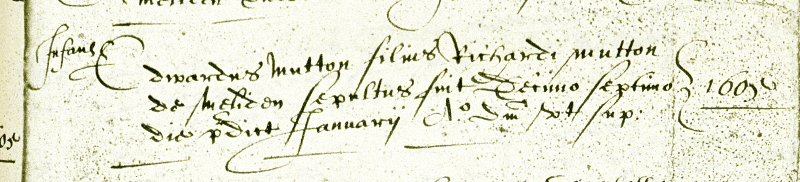 Infans
Edwardus Mutton filius Richardi Mutton
de Meliden sepultus fuit Decimo septimo } 1605
die pdict Januarij Ao. Dm. ut sup: